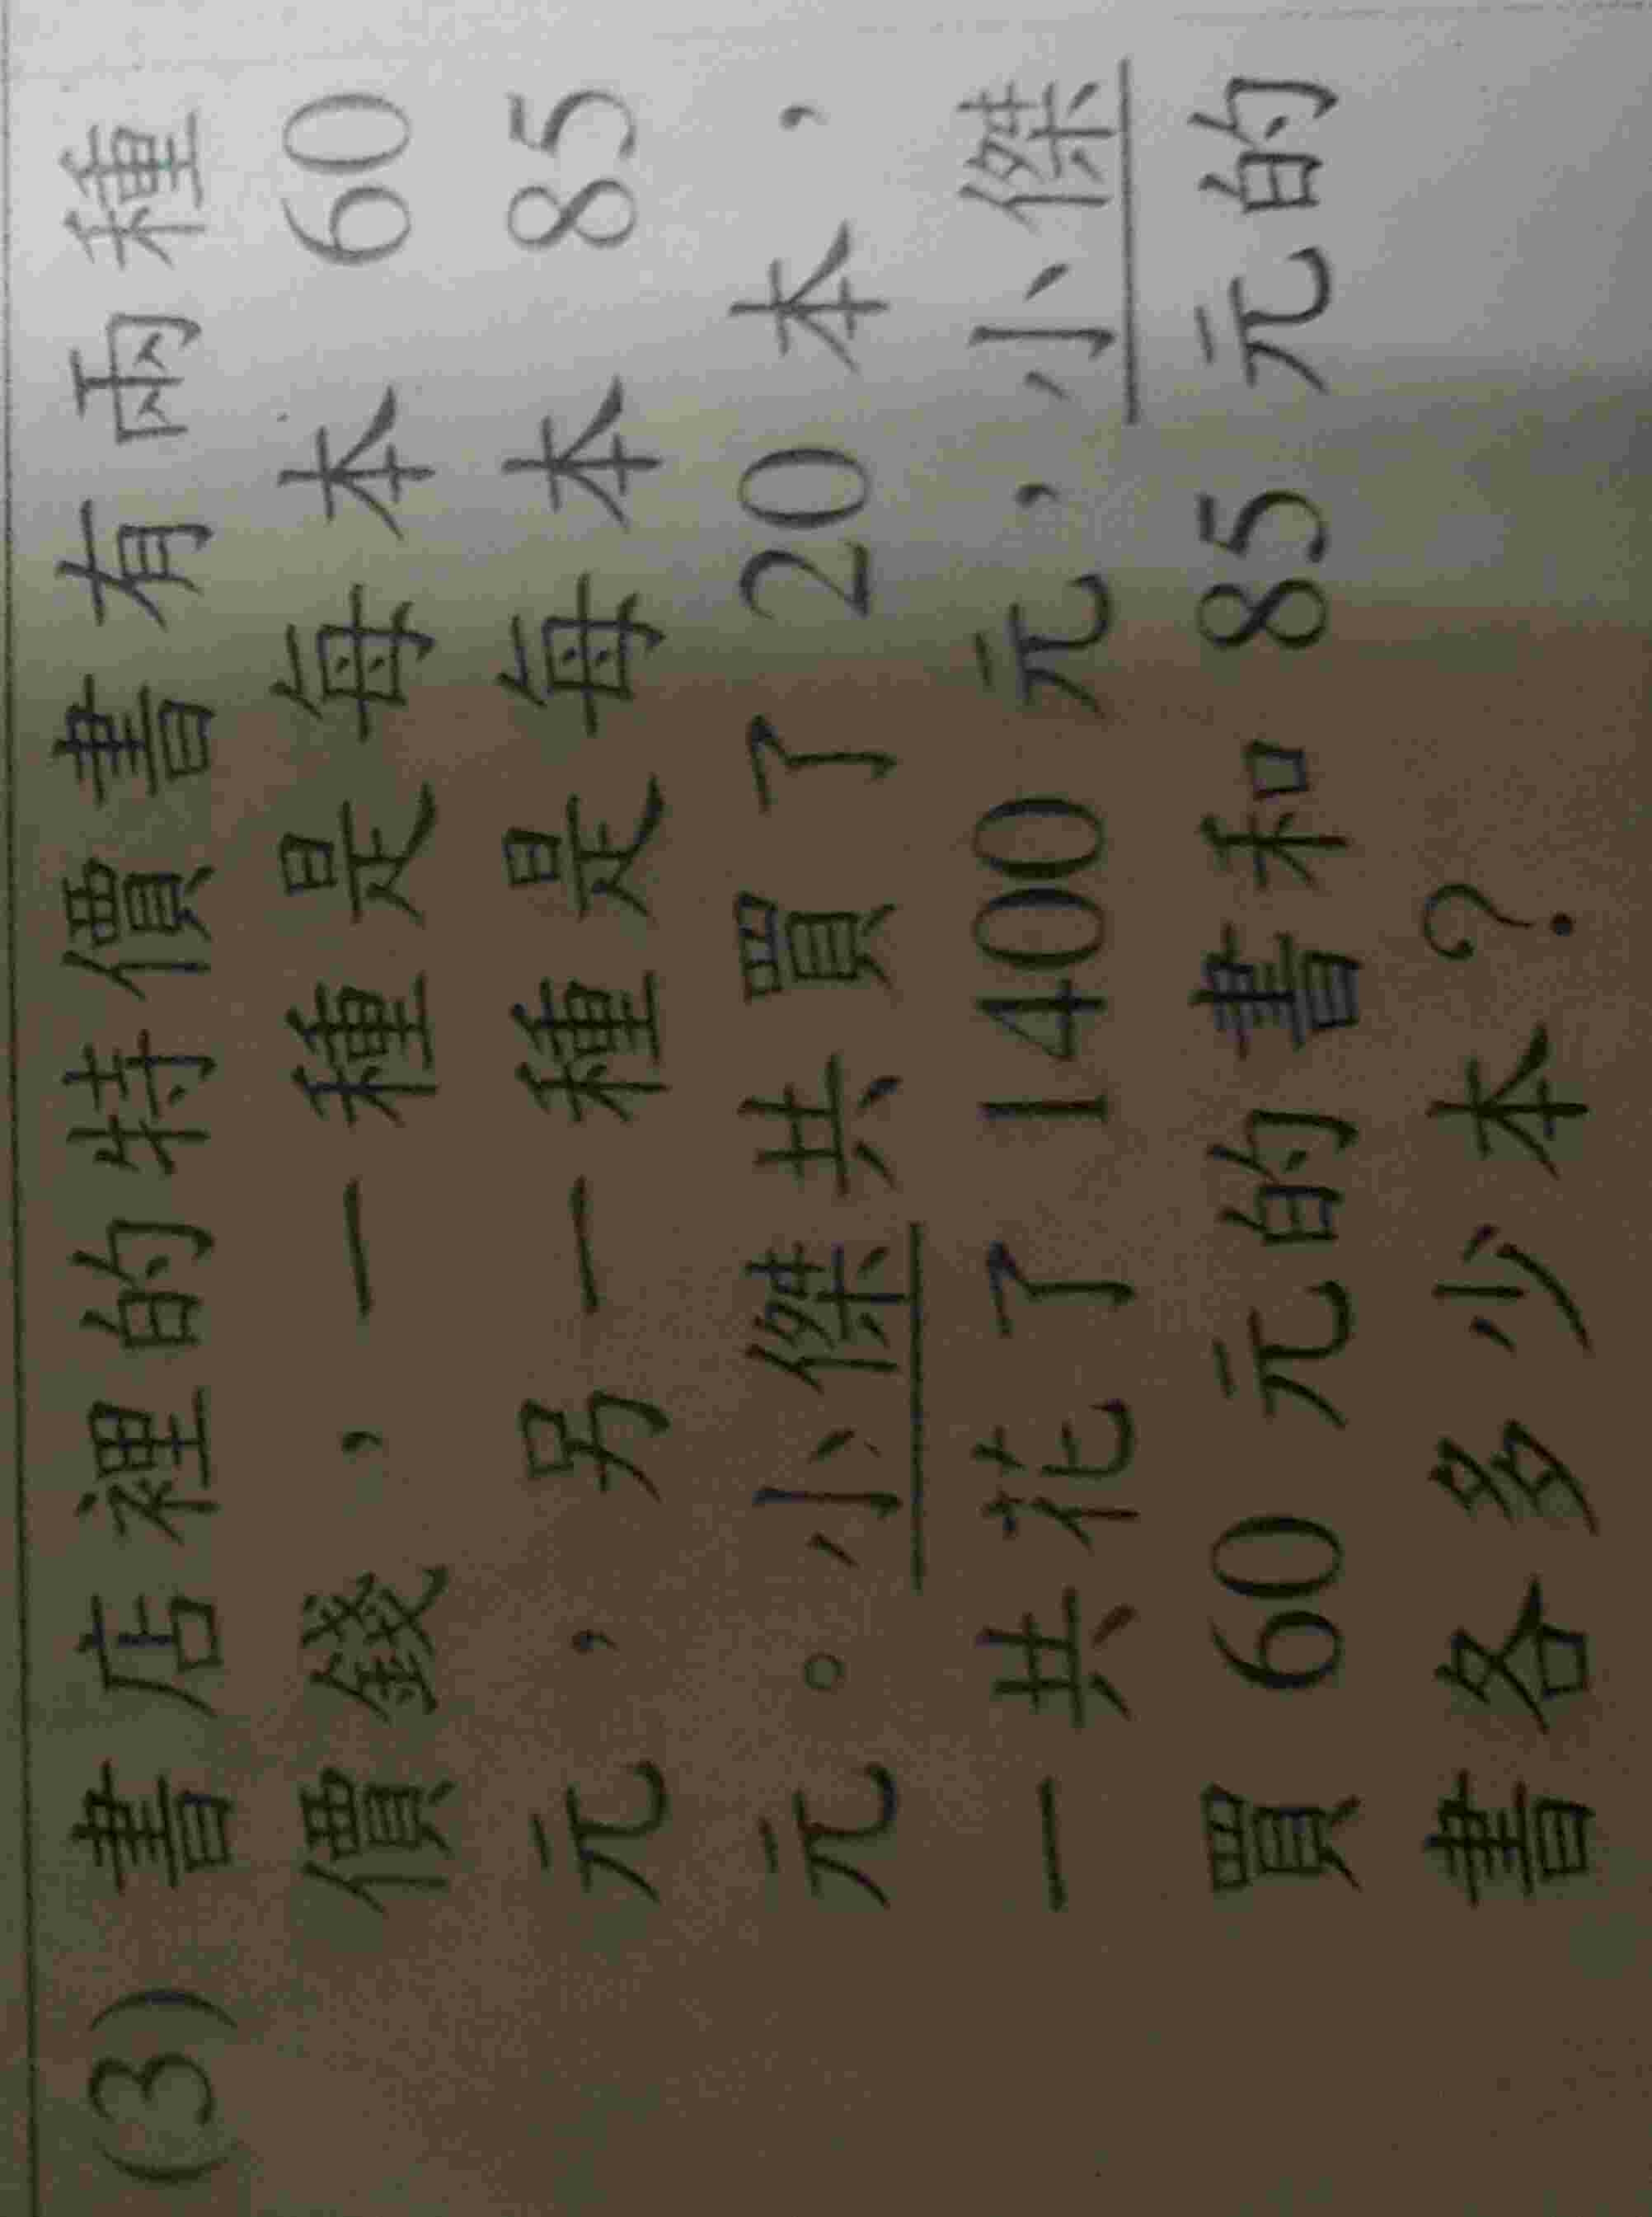 (3) 書店裡的特價書有兩種
價錢，一種是每本 60
元，另一種是每本 85
元。小傑共買了 20 本，
一共花了 1400 元，小傑
買 60 元的書和 85 元的
書各多少本？